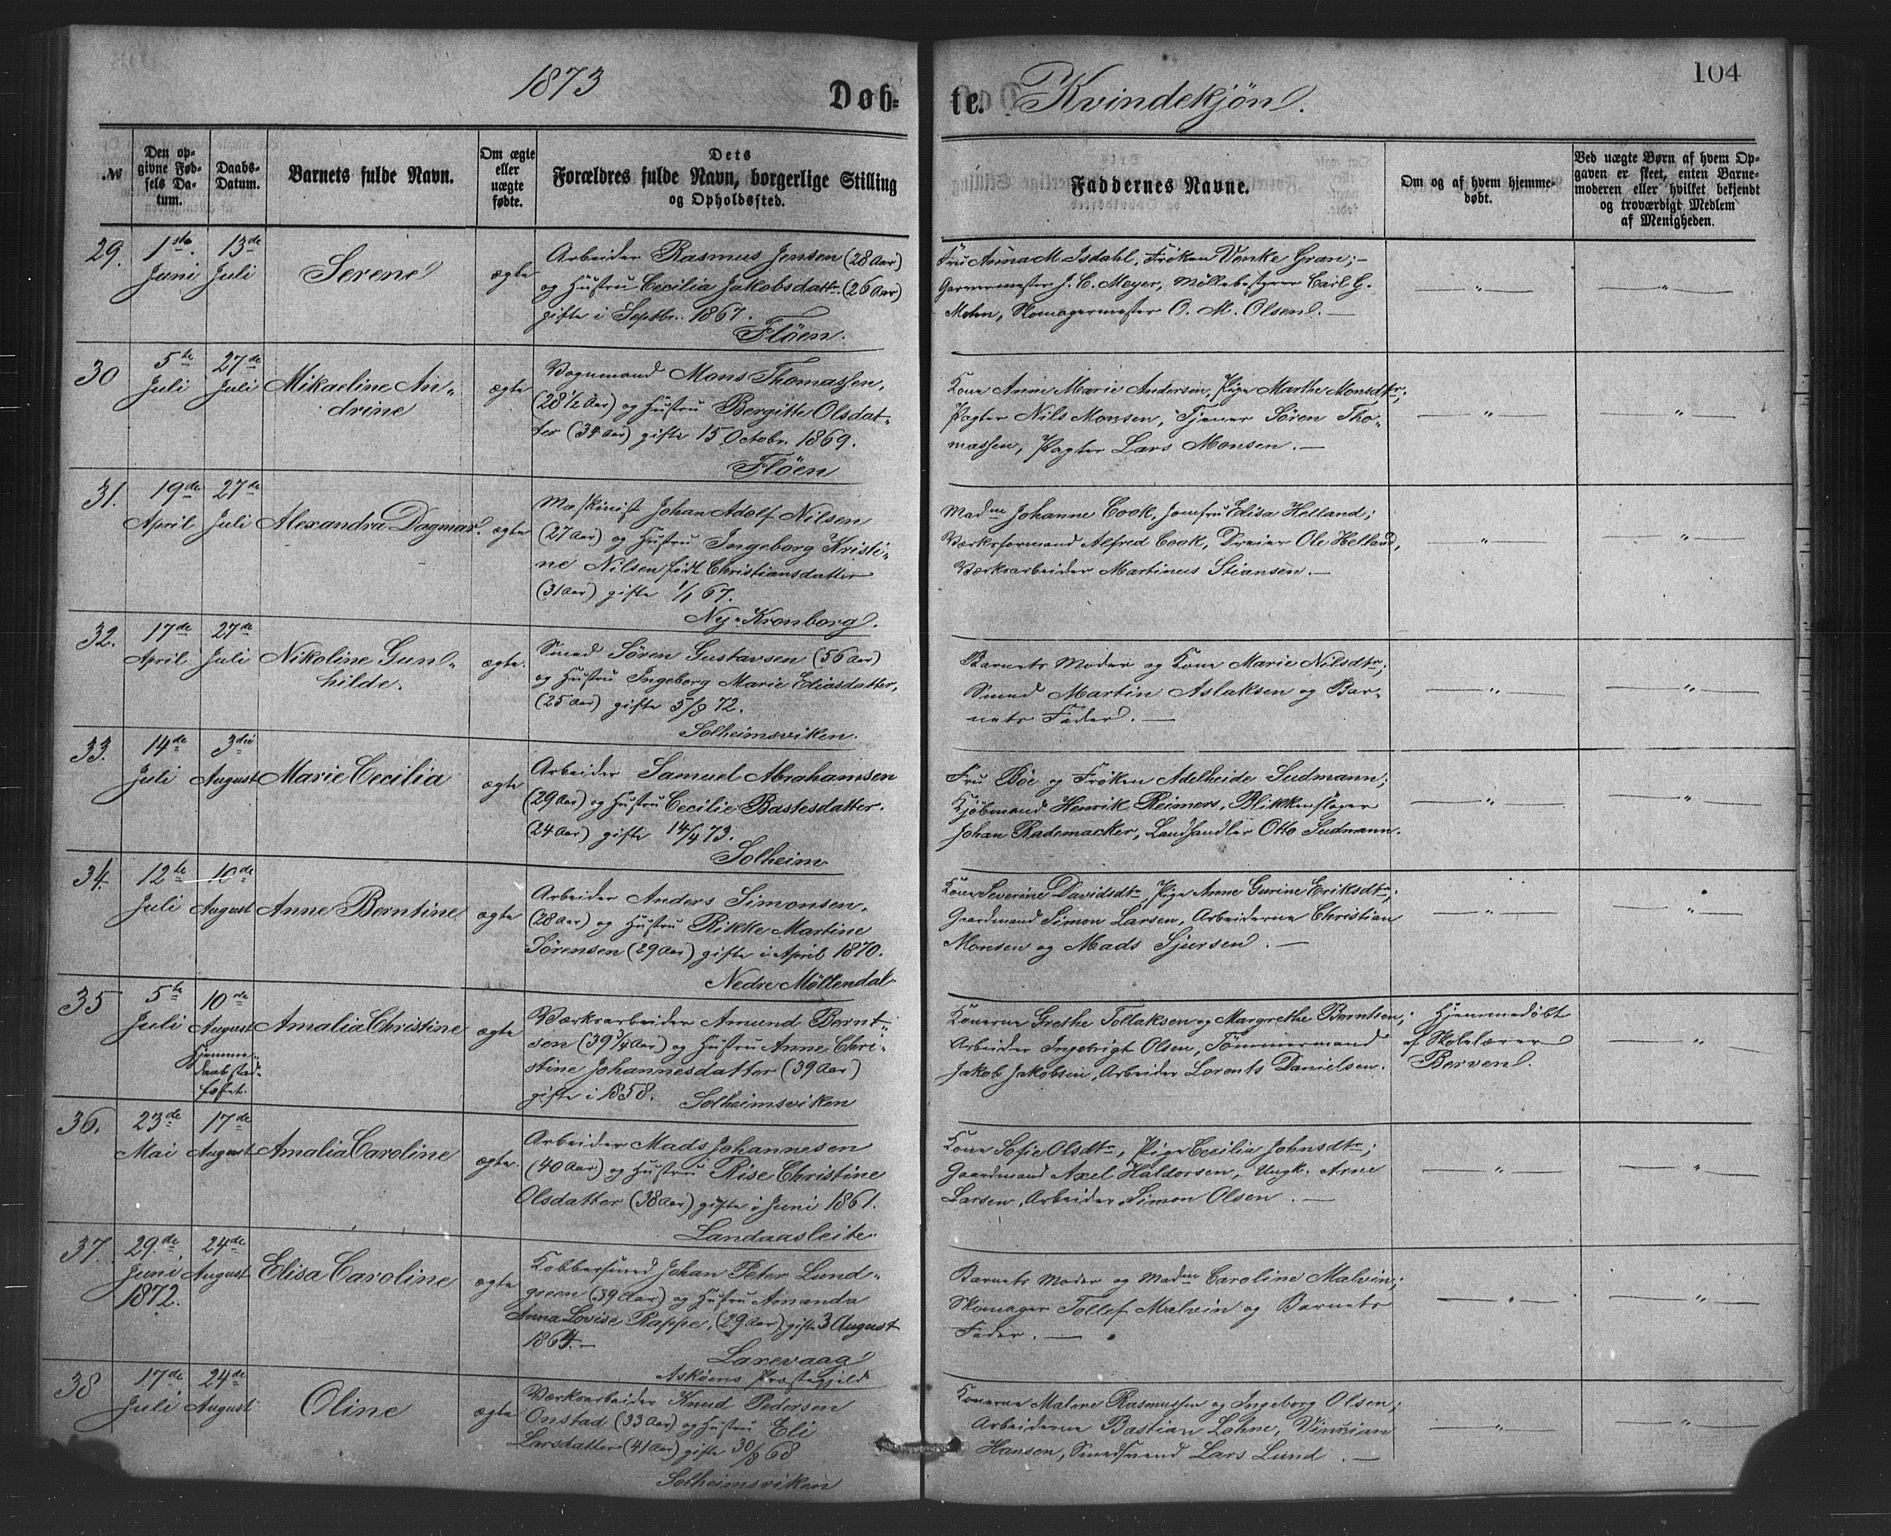 1873
Døb-
te. Kvindekjøn.
104
№
Den op-
givne Fød-
sels Da-
tum.
Daabs-
Datum.
Barnets fulde Navn.
Om ægte
eller
uægte
fødte.
Dets
Forældres fulde Navn, borgerlige Stilling
og Opholdssted.
Faddernes Navne.
Om og af hvem hjemme-
døbt.
Ved uægte Børn af hvem Op-
gaven er skeet, enten Barne-
moderen eller hvilket bekjendt
og troværdigt Medlem
af Menigheden.
29.
1ste
Juni
13de
Juli
Serene
ægte
Arbeider Rasmus Jensen (28 Aar)
og Hustru Cecilia Jakobsdattr. (26 Aar)
gifte i Septbr. 1867.
Fløen.
Fru Anna M. Isdahl, Frøken Venke Gran;-
Garvermester J. C. Meyer, Møllebestyrer Carl G.
Mohn, Skomagermester O. M. Olsen. —
— " —
— " —
30
5te
Juli
27de
Juli
Mikaeline An-
drine
ægte
Vognmand Mons Thomassen,
(28 1/2 Aar) og Hustru Bergitte Olsdat-
ter (34 Aar) gifte 15 Octobr. 1869.
Fløen
Kone Anne Marie Andersen, Pige Marthe Monsdtr;
Pagter Nils Monsen, Tjener Søren Tho-
massen, Pagter Lars Monsen. —
— " —
— " —
31.
19de
April
27de
Juli
Alexandra Dagmar.
ægte
Maskinist Johan Adolf Nilsen
(27 Aar) og Hustru Ingeborg Kristi-
ne Nilsen født Christiansdatter
(31 Aar) gifte 1/1 67.
Ny-Kronborg.
Madm Johanne Cook, Jomfru Elisa Helland;
Værksformand Alfred Cook, Dreier Ole Helland,
Værksarbeider Martinus Stiansen. —
— " —
— " —
32.
17de
April
27de
Juli
Nikoline Gun-
hilde.
ægte.
Smed Søren Gustavsen (56 Aar)
og Hustru Ingeborg Marie Eliasdatter,
(25 Aar) gifte 5/8 72.
Solheimsviken.
Barnets Moder og Kone Marie Nilsdtr;
Smed Martin Aslaksen og Bar-
nets Fader. —
— " —
— " —
33.
14de
Juli
3die
August
Marie Cecilia
ægte
Arbeider Samuel Abrahamsen
(29 Aar) og Hustru Cecilie Bastesdatter.
(24 Aar) gifte 14/4 73.
Solheim
Fru Bøe og Frøken Adelheide Sudmann;
Kjøbmand Henrik Reimers, Blikkenslager
Johan Rademacker, Landhandler Otto Sudmann.
— " —
— " —
34.
12te
Juli
10de
August
Anne Berntine
ægte
Arbeider Anders Simonsen,
(28 Aar) og Hustru Rikke Martine
Sørensen (29 Aar) gifte i April 1870.
Nedre Møllendal.
Kone Severine Davidsdtr, Pige Anne Gurine Eriksdtr;
Gaardmand Simon Larsen, Arbeiderne Christian
Monsen og Mads Sjursen. —
— " —
— " —
35
5te
Juli
10de
August
Hjemme-
daab stad-
fæstet.
Amalia Christine
ægte
Værksarbeider Amund Bernt-
sen (39 3/4 Aar) og Hustru Anne Chri-
stine Johannesdatter (39 Aar)
gifte i 1858. Solheimsviken
Konerne Grethe Tollaksen og Margrethe Berntsen;
Arbeider Ingebrigt Olsen, Tømmermand
Jakob Jakobsen, Arbeider Lorents Danielsen.
Hjemmedøbt
af Skolelærer
Berven.
— " —
36.
23de
Mai
17de
August
Amalia Caroline
ægte.
Arbeider Mads Johannesen
(40 Aar) og Hustru Rise Christine
Olsdatter (38 Aar) gifte i Juni 1861.
Landaasleite
Kone Sofie Olsdtr, Pige Cecilia Johnsdtr;
Gaardmand Axel Haldorsen, Ungk. Arne
Larsen, Arbeider Simon Olsen. —
— " —
— " —
37.
29de
Juni
1872.
24de
August
Elisa Caroline
ægte
Kobbersmed Johan Peter Lund-
green (39 Aar) og Hustru Amanda
Anna Lovise Rappe, (29 Aar) gifte 3 August
1864.—
Laxevaag
Askøens Præstegjeld
Barnets Moder og Madm Caroline Malvin;
Skomager Tollef Malvin og Barnets
Fader. —
— " —
— " —
38
17de
Juli
24de
August
Oline
ægte
Værksarbeider Knud Pedersen
Onstad (33 Aar) og Hustru Eli
Larsdatter (41 Aar) gifte 30/8 68
Solheimsviken
Konerne Malene Rasmussen og Ingeborg Olsen;
Arbeiderne Bastian Lohne, Hansen, Smedsvend Lars Lund. —
— " —
— " —